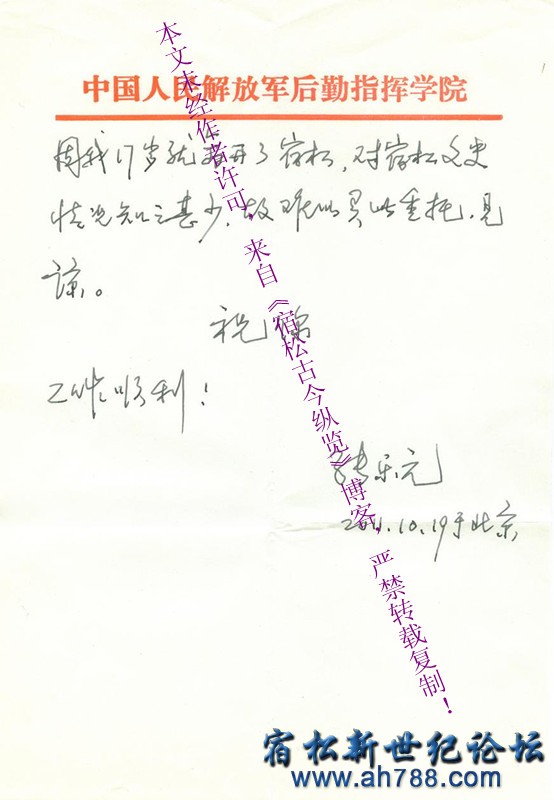 中国人民解放军后勤指挥学院
因我17岁就离开了宿松，对宿松文史
情况知之甚少，故难以负此重托，见
谅。
祝
工作顺利！
张乐元
10.19于北京
本文未经作者许可，来自《宿松古今纵览》博客，严禁转载复制！
宿松新世纪论坛
www.ah788.com